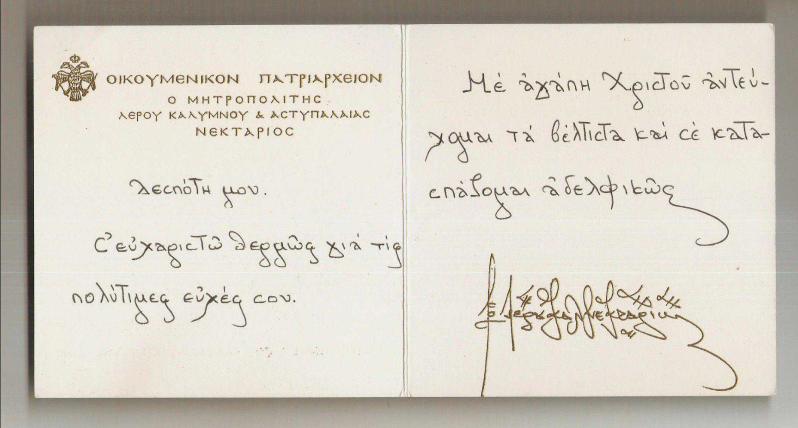 ΟΙΚΟΥΜΕΝΙΚΟΝ ΠΑΤΡΙΑΡΧΕΙΟΝ
Ο ΜΗΤΡΟΠΟΛΙΤΗС
ΛΕΡΟΥ ΚΑΛΥΜΝΟΥ & ΑСΤΥΠΑΛΑΙΑС
ΝΕΚΤΑΡΙΟС
Δεσπότη μου.
Σ' εὐχαριστῶ θερμῶς γιά τίς
πολύτιμες εὐχές σου.
Μέ ἀγάπη Χριστοῦ ἀντεύ-
χομαι τά βέλτιστα καί σέ κατα-
σπάζομαι ἀδελφικῶς